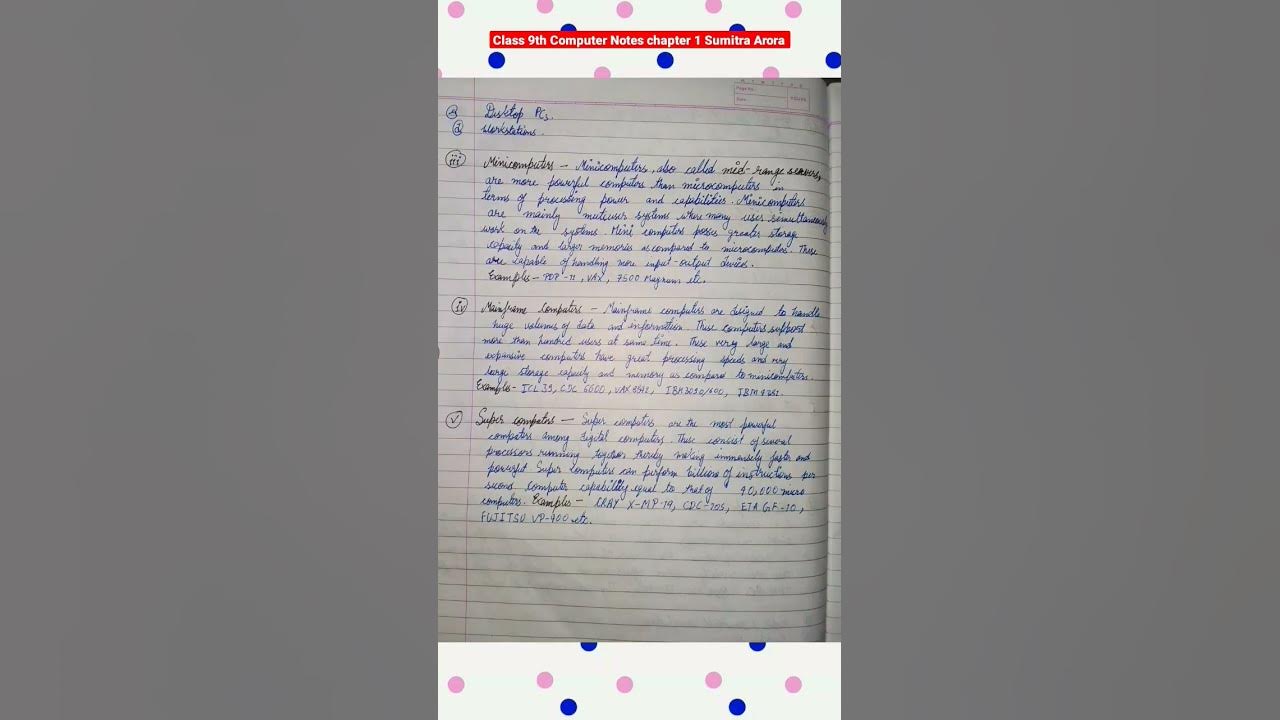 Class 9th Computer Notes chapter 1 Sumitra Arora
Page No.
Date
Desktop PCs.
Workstations.
iii Minicomputers – Minicomputers, also called mid-range servers,
are more powerful computers than microcomputers in
terms of processing power and capabilities. Minicomputers
are mainly mutiuser systems where many user simultaneously
work on the systems. Mini computers posses greater storage
capacity and larger memories as compared to microcomputers. These
are capable of handling more input-output devices.
Examples – PDP-11, VAX, 7500 Magnum etc.
iv Mainframe Computers – Mainframe computers are designed to handle
huge volumes of data and information. These computers support
more than hundred users at same time. These very large and
expansive computers have great processing speeds and very
large storage capacity and memory as compared to minicomputers.
Examples- ICL 39, CDC 6600, VAX 8842, IBM 3090/600, IBM 4381.
v Super computers – Super computers are the most powerful
computers among digital computers These consist of several
processors running together thereby making immensely faster and
powerful Super computers can perform billions of instructions per
second computer capability equal to that of 40,000 micro
computers. Examples – CRAY X-MP-14, CDC-205, ETA GF-10,
FUJITSU VP-400 etc.